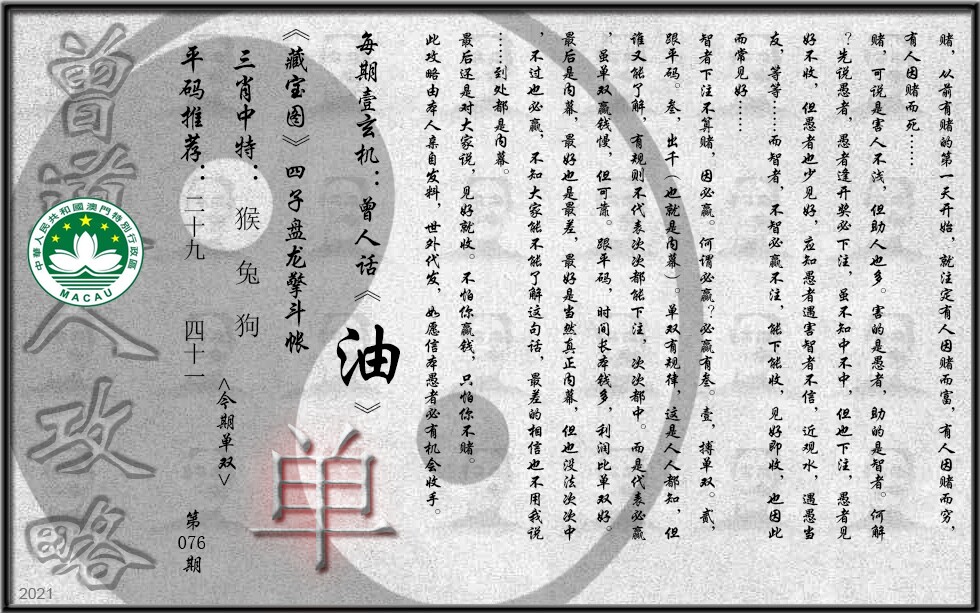 赌，从前有赌的第一天开始，就注定有人因赌而富，有人因赌而穷，
有人因赌而死……
赌，可说是害人不浅，但助人也多。害的是愚者，助的是智者。何解
？先说愚者，愚者逢开奖必下注，虽不知中不中，但也下注，愚者见
好不收，但愚者也少见好，应知愚者遇害智者不信，近观水，遇愚当
友，等等……而智者，不智必赢不注，能下能收，见好即收，也因此
而常见好……
智者下注不算赌，因必赢。何谓必赢？必赢有叁。壹，搏单双。贰，
跟平码。叁，出千（也就是内幕）。单双有规律，这是人人都知，但
谁又能了解，有规则不代表次次都能下注，次次都中。而是代表必赢
，虽单双赢钱慢，但可靠。跟平码，时间长本钱多，利润比单双好。
最后是内幕，最好也是最差，最好是当然真正内幕，但也没法次次中
，不过也必赢，不知大家能不能了解这句话，最差的相信也不用我说
……到处都是内幕。
最后还是对大家说，见好就收。不怕你赢钱，只怕你不赌。
此攻略由本人亲自发料，世外代发，如愿信本愚者必有机会收手。
每期壹玄机：曾人话《油》
《藏宝图》四子盘龙擎斗帐
三肖中特：猴 兔 狗
平码推荐：二十九 四十一
<今期单双>
单
第
076
期
曾道人攻略
中華人民共和國澳門特別行政區
MACAU
2021